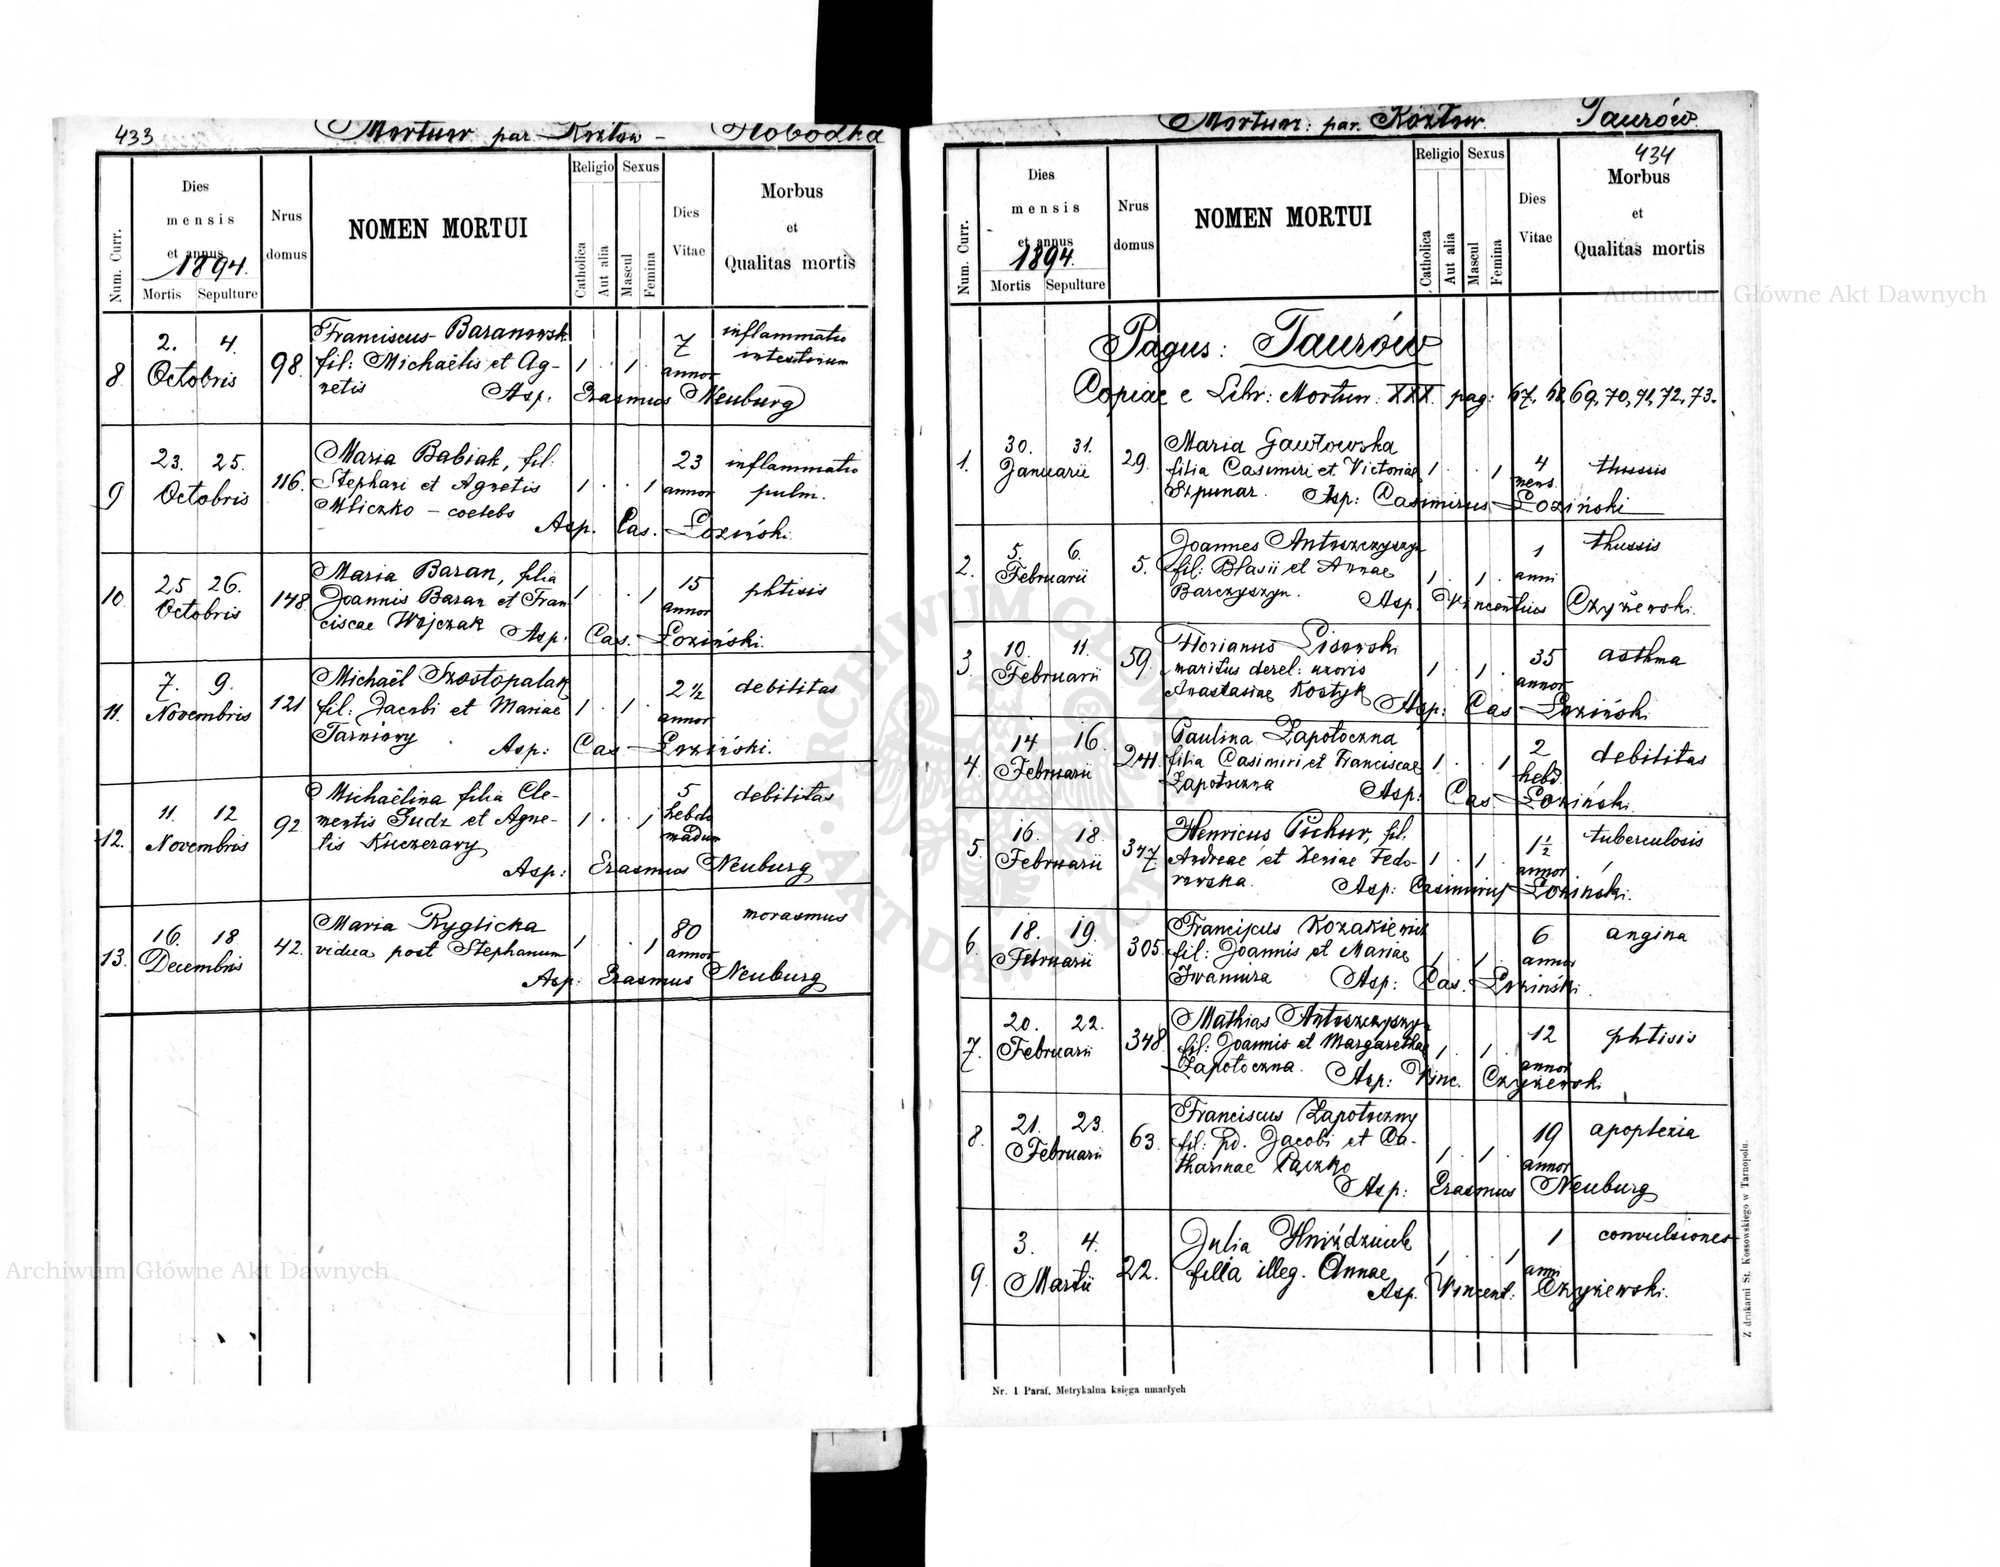 433 Mortuor par Kozłow - Słobodka
Num. Curr.
Dies
mensis
et annus
1894.
Mortis Sepulture
Nrus
domus
NOMEN MORTUI
Religio Sexus
Catholica
Aut alia
Mascul
Femina
Dies
Vitae
Morbus
et
Qualitas mortis
8 2. 4. Octobris 98. Franciscus Baranowsk
fil: Michaëlis et Ag- 1 . 1 . 7 annor inflammatio
netis Asp. Erasmus Neuburg
9 23. 25. Octobris 116. Maria Babiak, fil:
Stephani et Agnetis 1 . . 1 23 annor inflammatio pulm.
Mliczko - coelebs
Asp. Cas. Łoziński.
10. 25 26. Octobris 148 Maria Baran, filia
Joannis Baran et Fran 1 . . 1 15 annor phtisis
ciscae Wojczak Asp. Cas. Łoziński.
11. 7. 9. Novembris 121 Michaël Szostopalak
fil: Jacobi et Mariae 1 . 1 . 2 1/2 annor debilitas
Asp: Cas Łoziński.
12. 11. 12 Novembris 92 Michaëlina filia Cle-
mentis Gudz et Agne- 1 . . 1 5 hebdo madum debilitas
tis Kuczerawy
Asp: Erasmus Neuburg
13. 16. 18 Decembris 42. Maria Ryglicka
vidua post Stephanum 1 . . 1 80 annor morasmus
Asp: Erasmus Neuburg
Mortuor: par. Kozłow. Taurów.
434
Num. Curr.
Dies
mensis
et annus
1894.
Mortis Sepulture
Nrus
domus
NOMEN MORTUI
Religio Sexus
Catholica
Aut alia
Mascul
Femina
Dies
Vitae
Morbus
et
Qualitas mortis
Pagus: Taurów
Copiae e Libr: Mortuor. XXX. pag: 67, 68, 69, 70, 71, 72, 73.
1. 30. 31. Januarii 29. Maria Gawłowska
filia Casimiri et Victoriae 1 . . 1 4 mens. thussis
Szpunar. Asp: Casimirus Łoziński
2. 5. 6. Februarii 5. Joannes Antoszczyszyn
fil: Blasii et Annae 1 . 1 . 1 anni thussis
Barczyszyn. Asp. Vincentius Czyżewski.
3. 10. 11. Februarii 59. Florianus Lisowski
maritus derel: uxoris 1 . 1 . 35 annor asthma
Anastasiae Kostyk Asp: Cas Łoziński
4. 14 16. Februarii 241. Paulina Zapotoczna
filia Casimiri et Franciscae 1 . . 1 2 hebd. debilitas
Zapotoczna Asp: Cas Łoziński.
5. 16. 18. Februarii 347. Henricus Pichur, fil.
Andreae et Xeniae Fedo- 1 . 1 . 1 1/2 annor tuberculosis
rowska. Asp: Casimirus Łoziński.
6. 18. 19. Februarii 305. Franciscus Kozakiewicz
fil: Joannis et Mariae 1 . 1 . 6 annor angina
Asp: Cas. Łoziński.
7. 20. 22. Februarii 348. Mathias Antoszczyszyn
fil: Joannis et Margarethae 1 . 1 . 12 annor phtisis
Zapotoczna. Asp: Vinc. Czyżewski
8. 21. 23. Februarii 63. Franciscus Zapotoczny
fil: pd. Jacobi et Ca- 1 . 1 . 19 annor apoplexia
tharinae Pączko
Asp: Erasmus Neuburg
9. 3. 4. Martii 22. Julia Hniździuch
filia illeg. Annae 1 . . 1 1 anni convulsiones
Asp. Vincent: Czyżewski.
Nr. 1 Paraf. Metrykalna księga umarłych
Z drukarni St. Kossowskiego w Tarnopolu.
Archiwum Główne Akt Dawnych
Archiwum Główne Akt Dawnych
ARCHIWUM GŁÓWNE AKT DAWNYCH